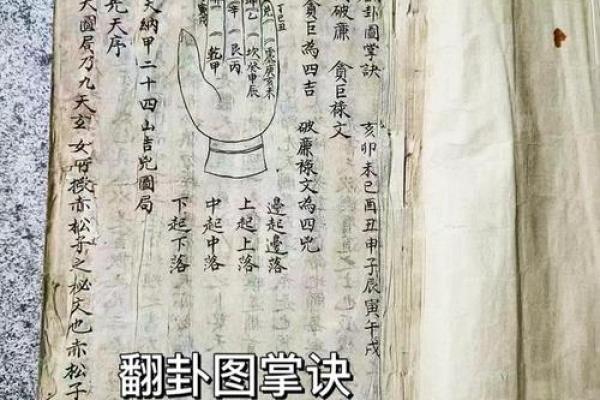 卦圖掌訣 亥卯未巳酉丑申子辰寅午戌
破廉 貪巨祿文
貪巨為四吉 破廉祿文為四兇
邊起邊落
上起上落
中起中落
下起下落
丁巳丑
震庚亥未
坎癸申辰
艮丙
乾甲
天納甲二十四山吉兇圖局
先天序
大圖局乃九天玄女所授赤松子之秘文也赤松子
翻卦图掌诀